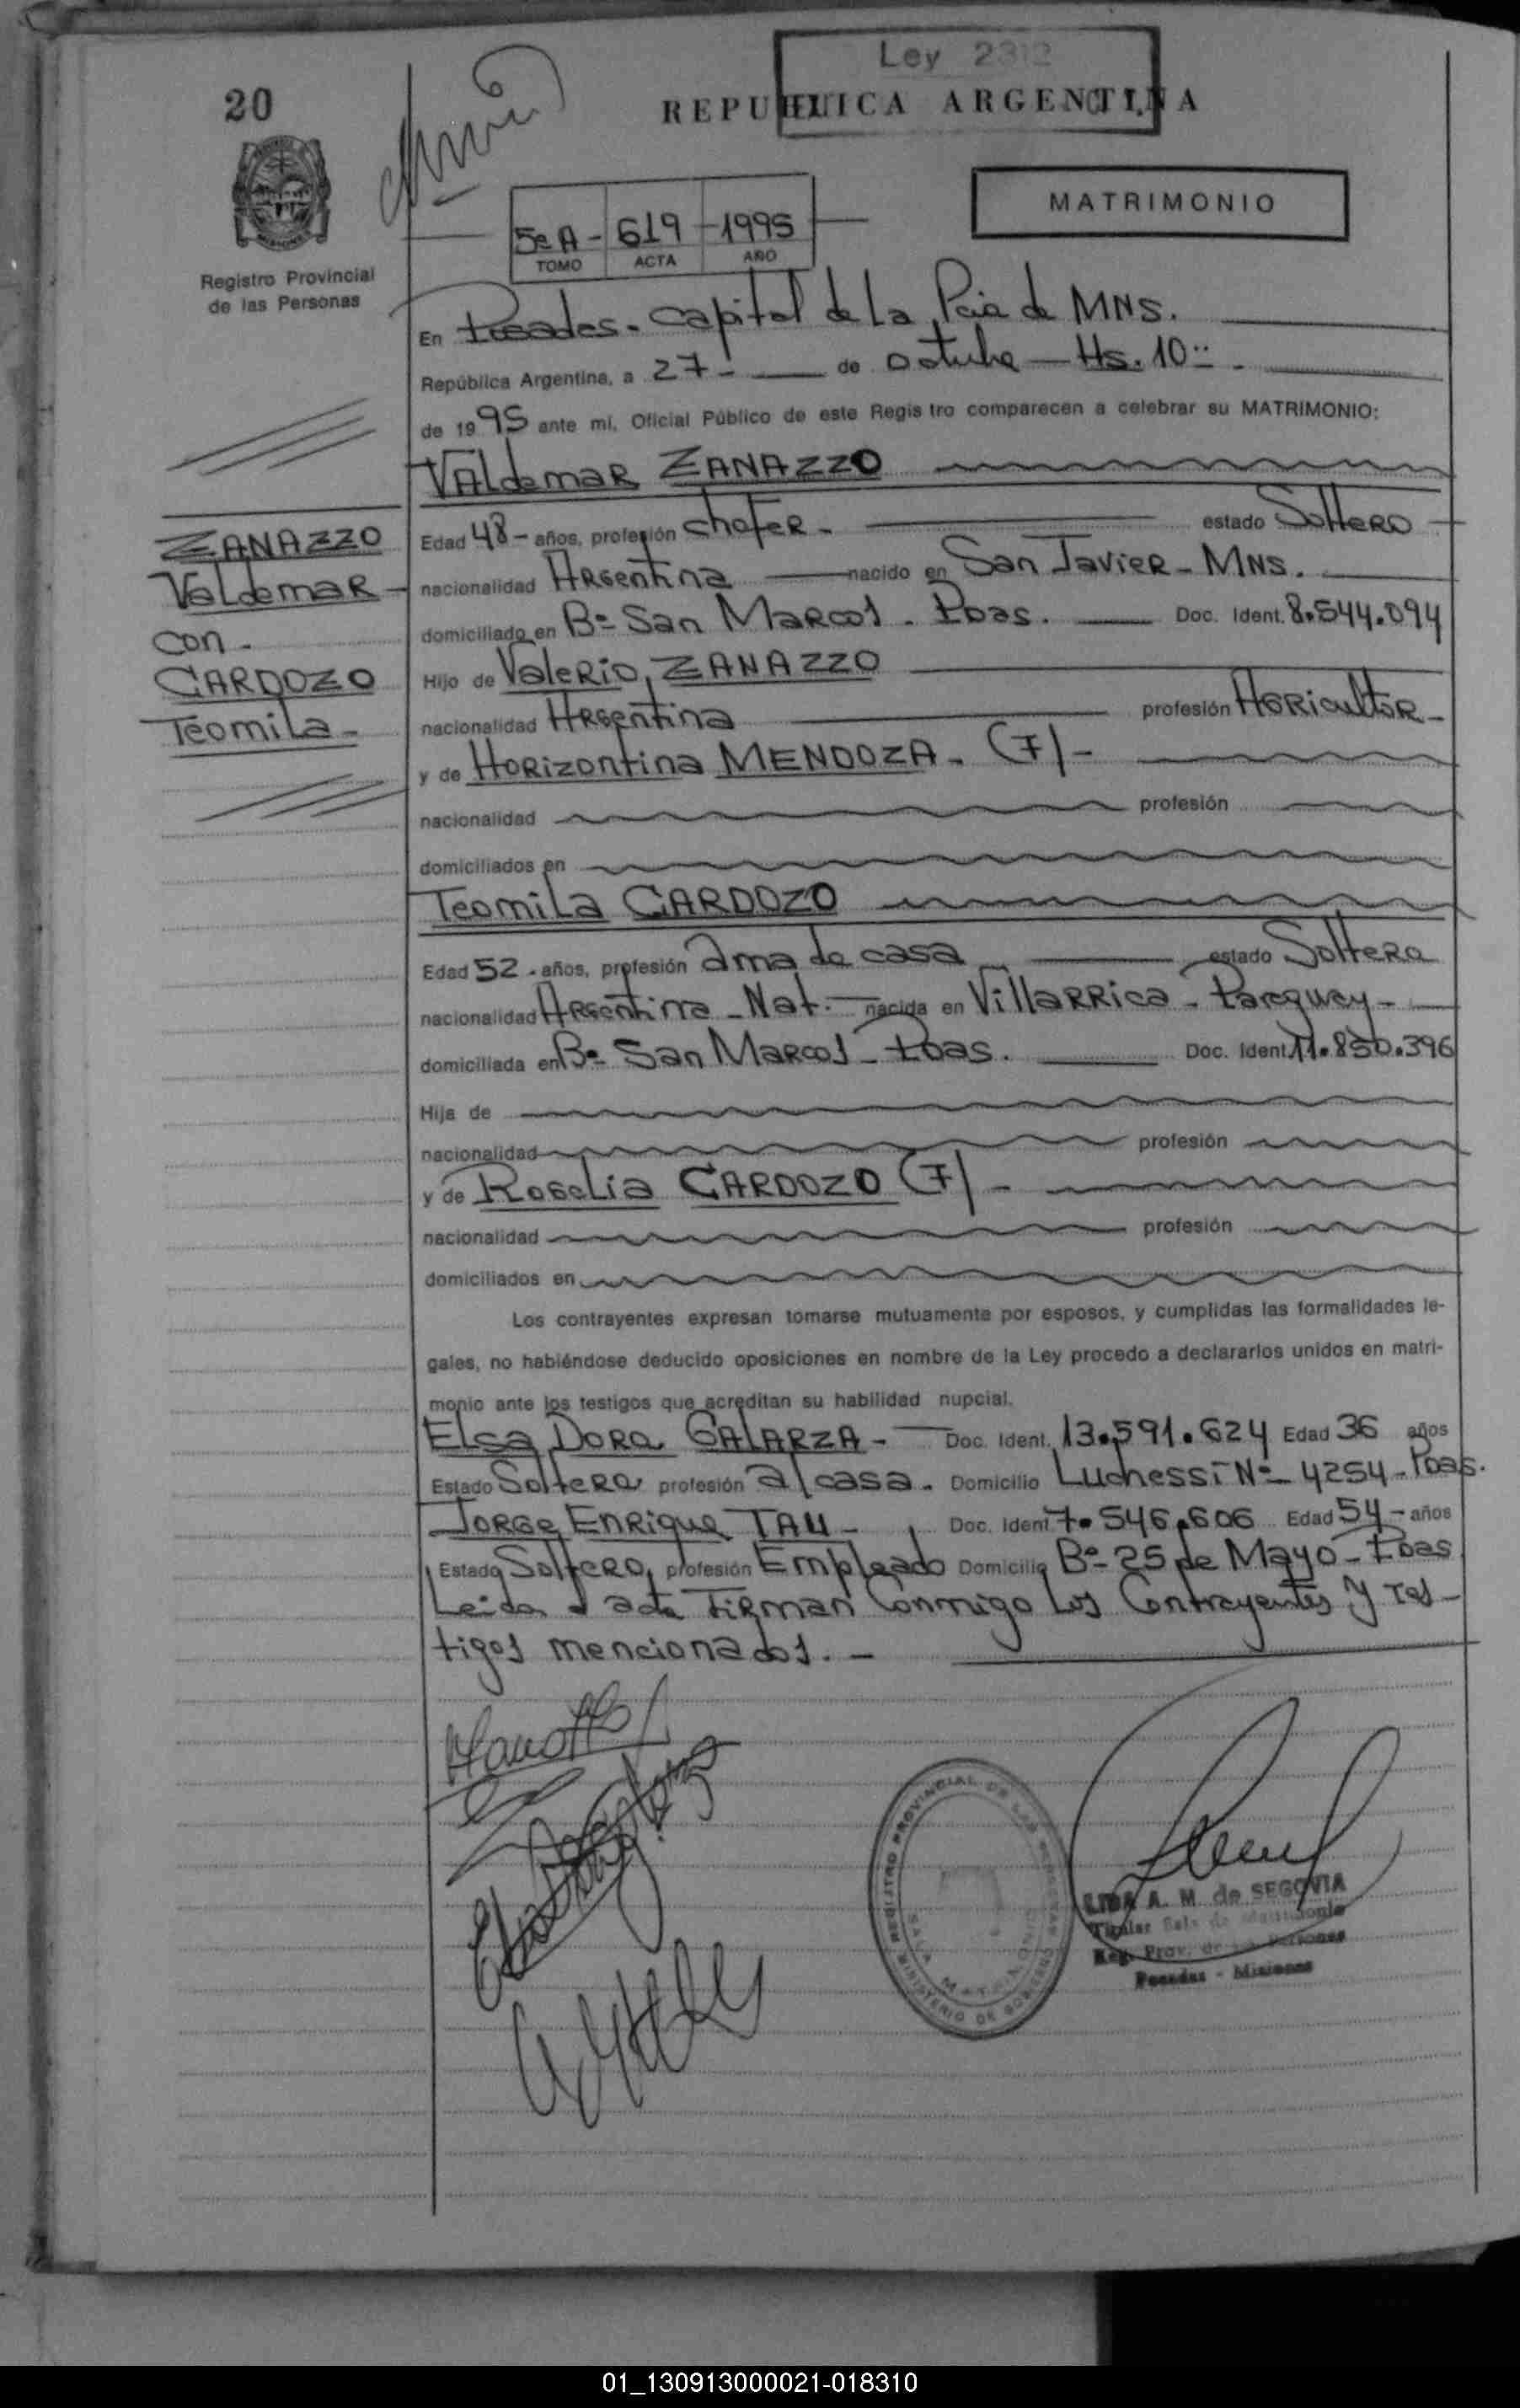 Ley 2312
20
REPUBLICA ARGENTINA
MATRIMONIO
5º A - 619 - 1995
TOMO ACTA AÑO
Registro Provincial
de las Personas
En Posadas - Capital de La Pcia de MNS.
República Argentina, a 27 - de octubre - Hs. 10
de 1995 ante mi, Oficial Público de este Registro comparecen a celebrar su MATRIMONIO:
Valdemar ZANAZZO
ZANAZZO
Valdemar -
con -
CARDOZO
Teomila -
Edad 48 - años, profesión chofer - estado Soltero
nacionalidad Argentina nacido en San Javier - MNS.
domiciliado en Bº San Marcos - Pdas. Doc. Ident. 8.544.094
Hijo de Valerio, ZANAZZO
nacionalidad Argentina profesión Agricultor -
y de Horizontina MENDOZA - (F) -
nacionalidad profesión
domiciliados en
Teomila CARDOZO
Edad 52 - años, profesión ama de casa estado Soltera
nacionalidad Argentina - Nat. - nacida en Villarrica - Paraguay -
domiciliada en Bº San Marcos - Pdas. Doc. Ident. 11.850.396
Hija de
nacionalidad profesión
y de Rogelia CARDOZO (F) -
nacionalidad profesión
domiciliados en
Los contrayentes expresan tomarse mutuamente por esposos, y cumplidas las formalidades le-
gales, no habiéndose deducido oposiciones en nombre de la Ley procedo a declararlos unidos en matri-
monio ante los testigos que acreditan su habilidad nupcial.
Elsa Dora GALARZA - Doc. Ident. 13.591.624 Edad 36 años
Estado Soltera profesión a/casa. Domicilio Luchessi Nº 4254 - Pdas.
Jorge Enrique TAU - Doc. Ident. 7.546.606 Edad 54 - años
Estado Soltero, profesión Empleado Domicilio Bº 25 de Mayo - Pdas
Leida el acta Firman Conmigo Los Contrayentes y Tes-
tigos mencionados. -
REGISTRO PROVINCIAL DE LAS PERSONAS
SALA MATRIMONIO
MINISTERIO DE GOBIERNO
LIDA A. M. de SEGOVIA
Titular Sala de Matrimonio
Reg. Prov. de las Personas
Posadas - Misiones
01_130913000021-018310